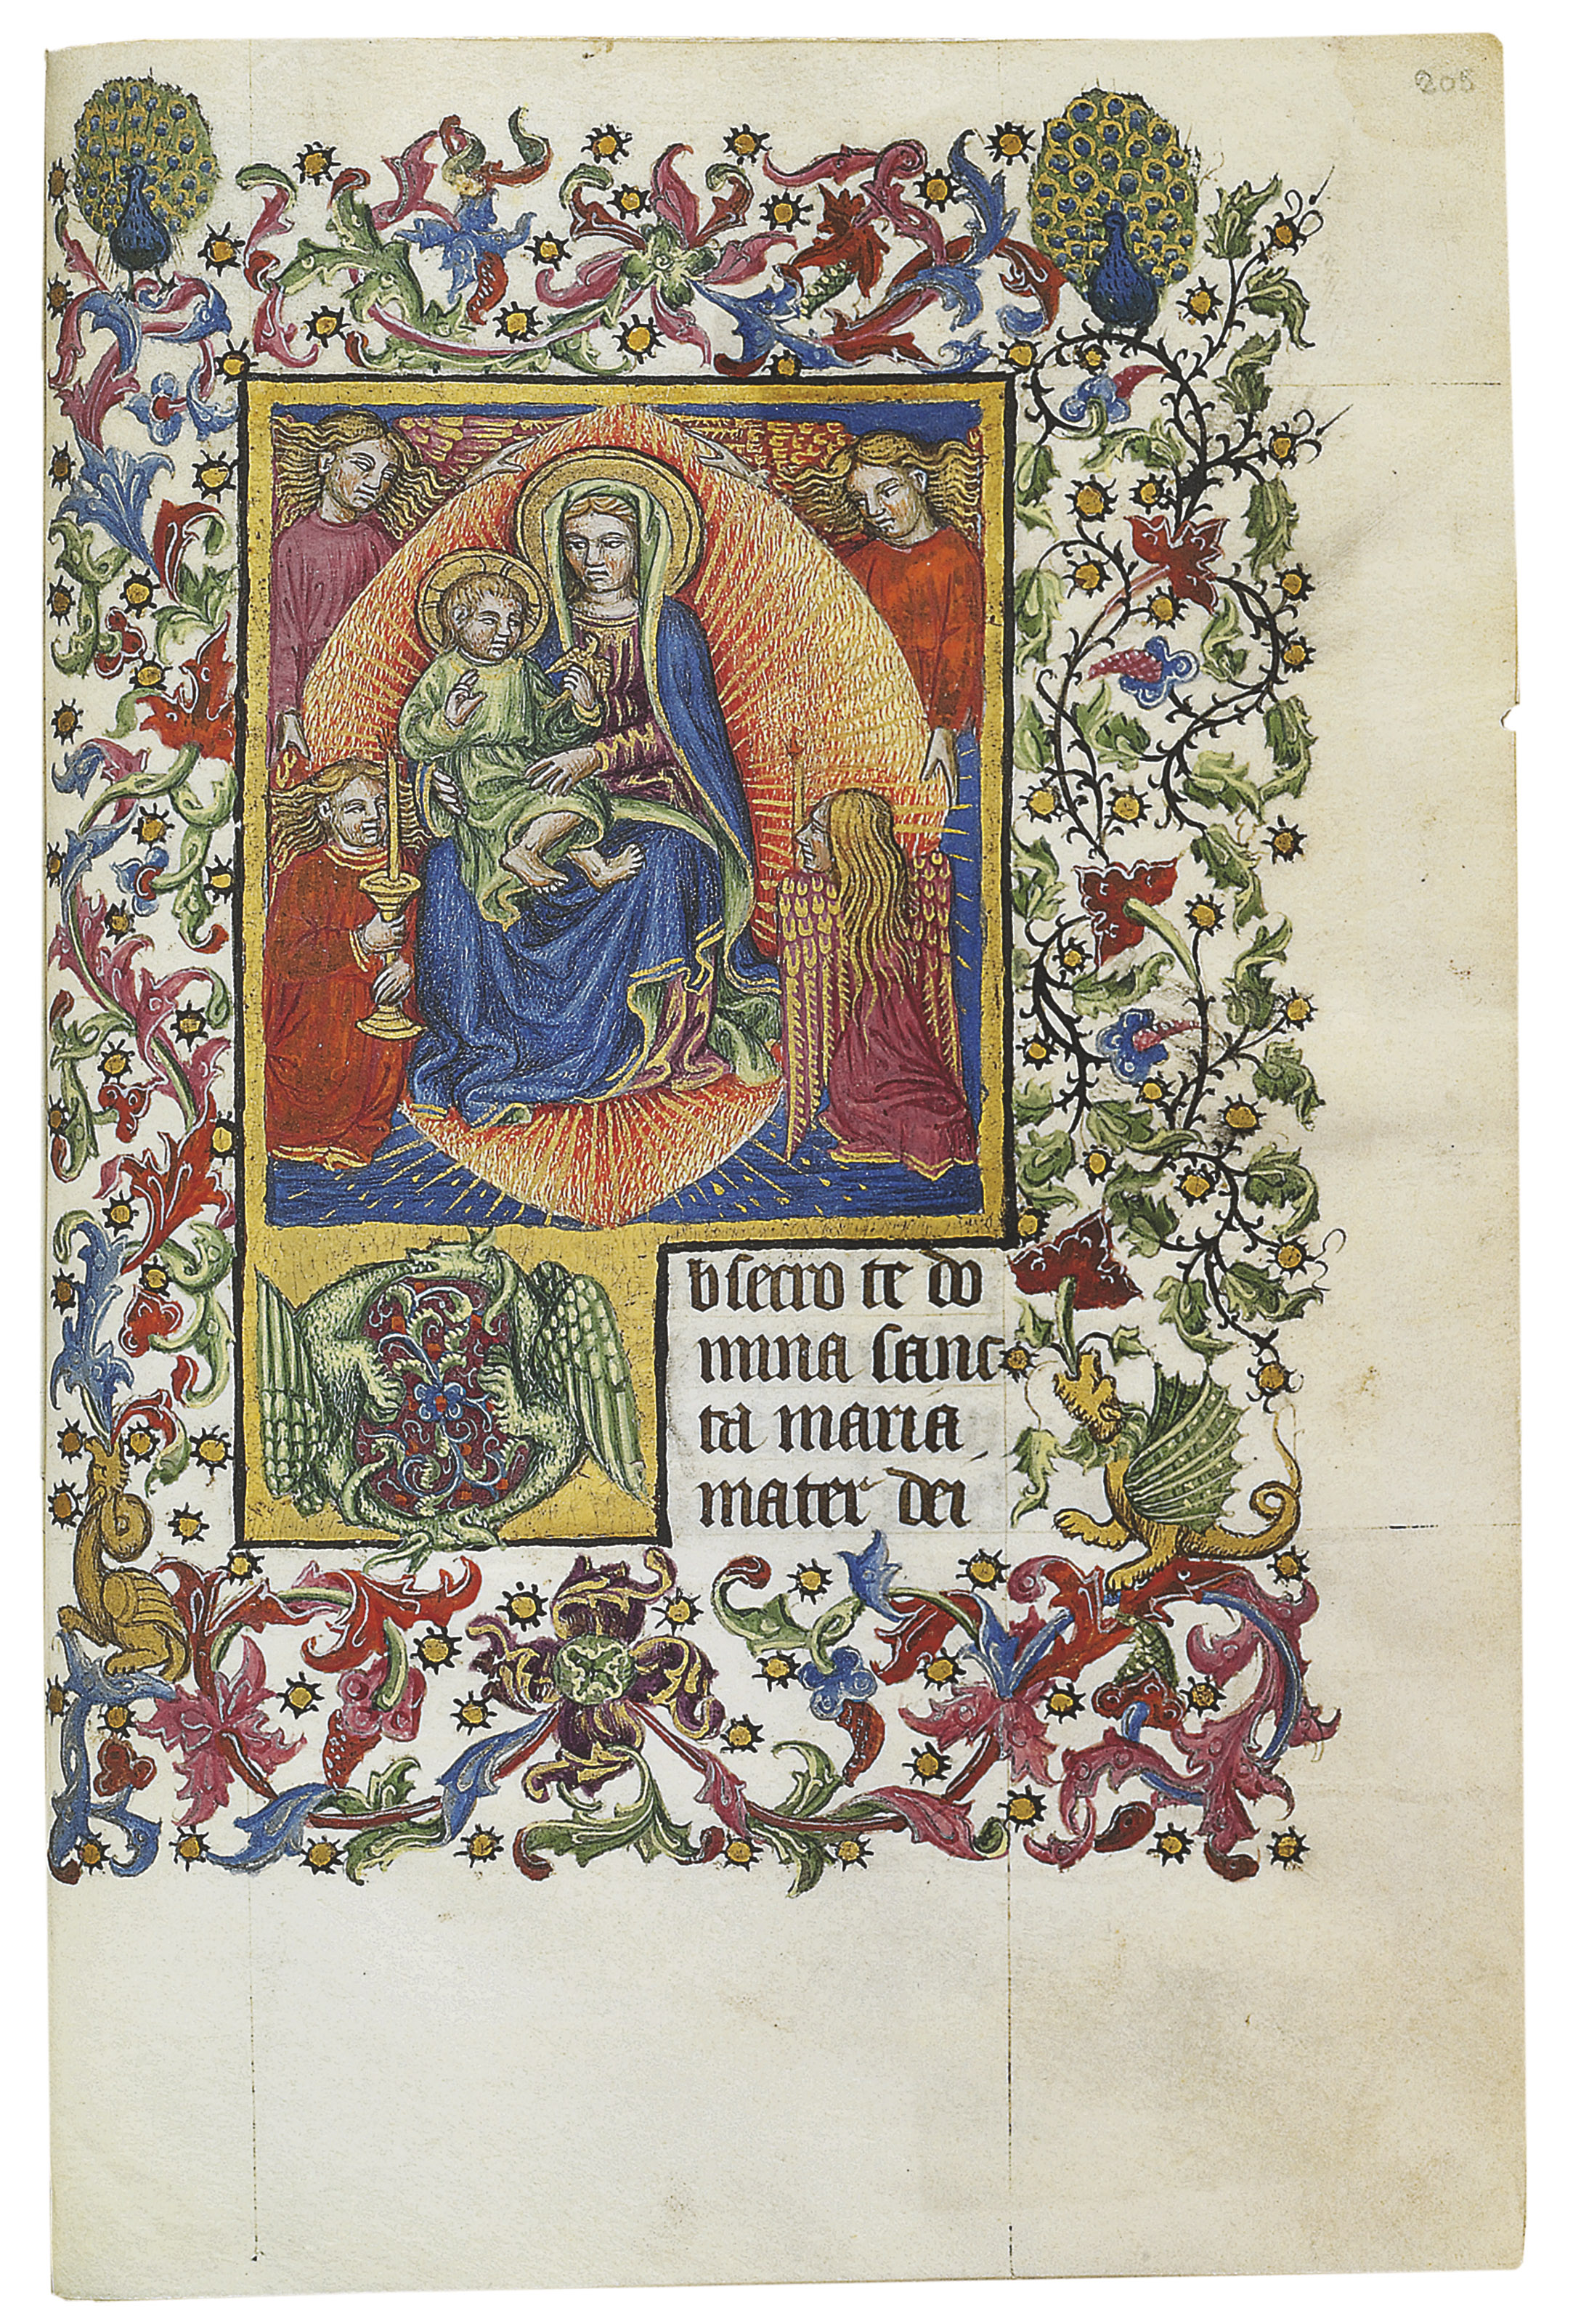 205
Obsecro te do
mina sanc
ta maria
mater dei